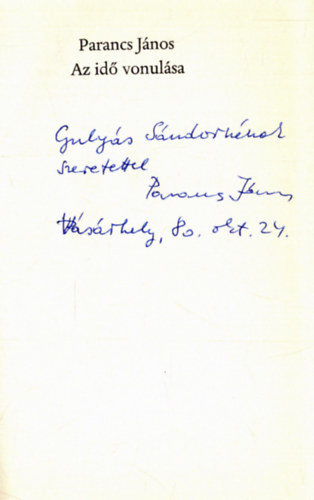 Parancs János
Az idő vonulása
Gulyás Sándornénak
szeretettel
Parancs János
Vásárhely, 80. okt. 24.